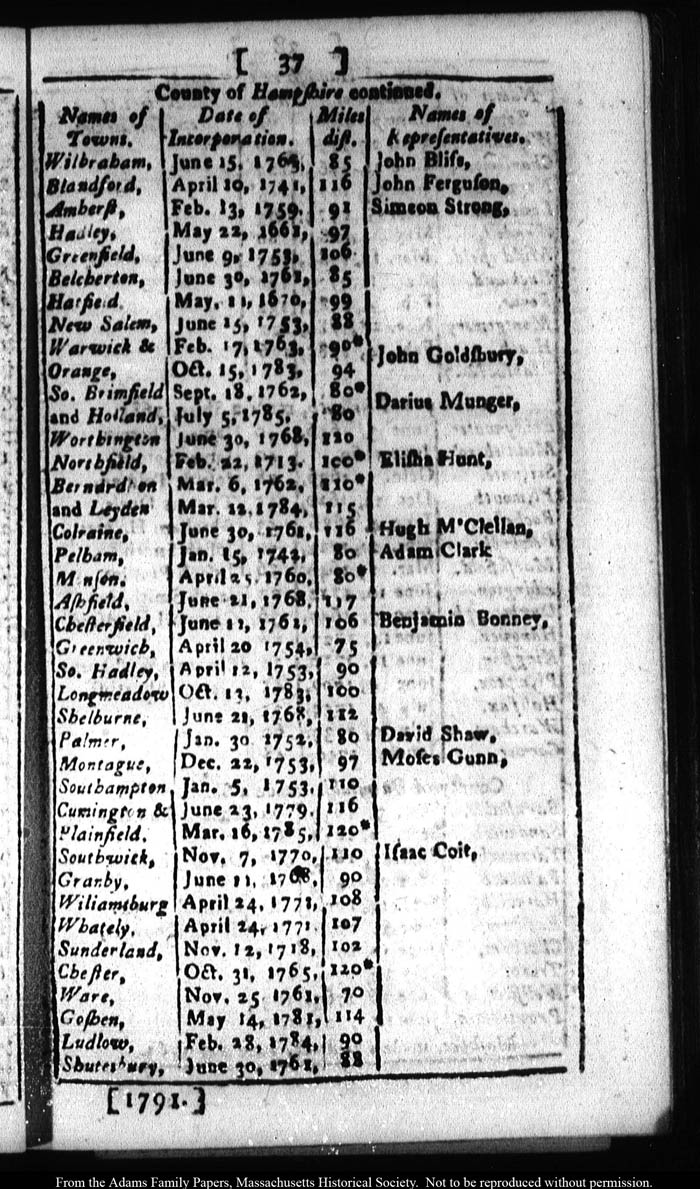 [ 37 ]
County of Hampſhire continued.
Names of Towns. Date of Incorporation. Miles diſt. Names of Repreſentatives.
Wilbraham, June 15, 1763, 85 John Bliſs,
Blandford, April 10, 1741, 116 John Ferguſon,
Amherſt, Feb. 13, 1759. 91 Simeon Strong,
Hadley, May 22, 1661, 97
Greenfield, June 9, 1753, 106
Belcherton, June 30, 1761, 85
Hatfield. May, 11, 1670, 99
New Salem, June 15, 1753, 88
Warwick & Feb. 17, 1763, 90*
John Goldſbury,
Orange, Oct. 15, 1783, 94
So. Brimfield Sept. 18, 1762, 80*
Darius Munger,
and Holland, July 5, 1785, 80
Worthington June 30, 1768, 120
Northfield, Feb. 22, 1713. 100* Eliſha Hunt,
Bernardſton Mar. 6, 1762, 110*
and Leyden Mar. 12, 1784, 115
Colraine, June 30, 1761, 116 Hugh M'Clellan,
Pelham, Jan. 15, 1742, 80 Adam Clark
Munſon, April 25, 1760, 80*
Aſhfield, June 21, 1768, 117
Cheſterfield, June 11, 1762, 106 Benjamin Bonney,
Greenwich, April 20 1754, 75
So. Hadley, April 12, 1753, 90
Longmeadow Oct. 13, 1783, 100
Shelburne, June 21, 1768, 112
Palmer, Jan. 30 1752, 80 David Shaw,
Montague, Dec. 22, 1753, 97 Moſes Gunn,
Southampton Jan. 5, 1753. 110
Cumington & June 23, 1779. 116
Plainfield. Mar. 16, 1785, 120*
Southwick, Nov. 7, 1770, 110 Iſaac Coit,
Granby, June 11, 1768, 90
Wiliamſburg April 24, 1771, 108
Whately, April 24, 1771. 107
Sunderland, Nov. 12, 1718, 102
Cheſter, Oct. 31, 1765, 120*
Ware, Nov. 25 1761, 70
Goſhen, May 14, 1781, 114
Ludlow, Feb. 28, 1784, 90
Shuteſbury, June 30, 1761, 88
[1791.]
From the Adams Family Papers, Massachusetts Historical Society. Not to be reproduced without permission.